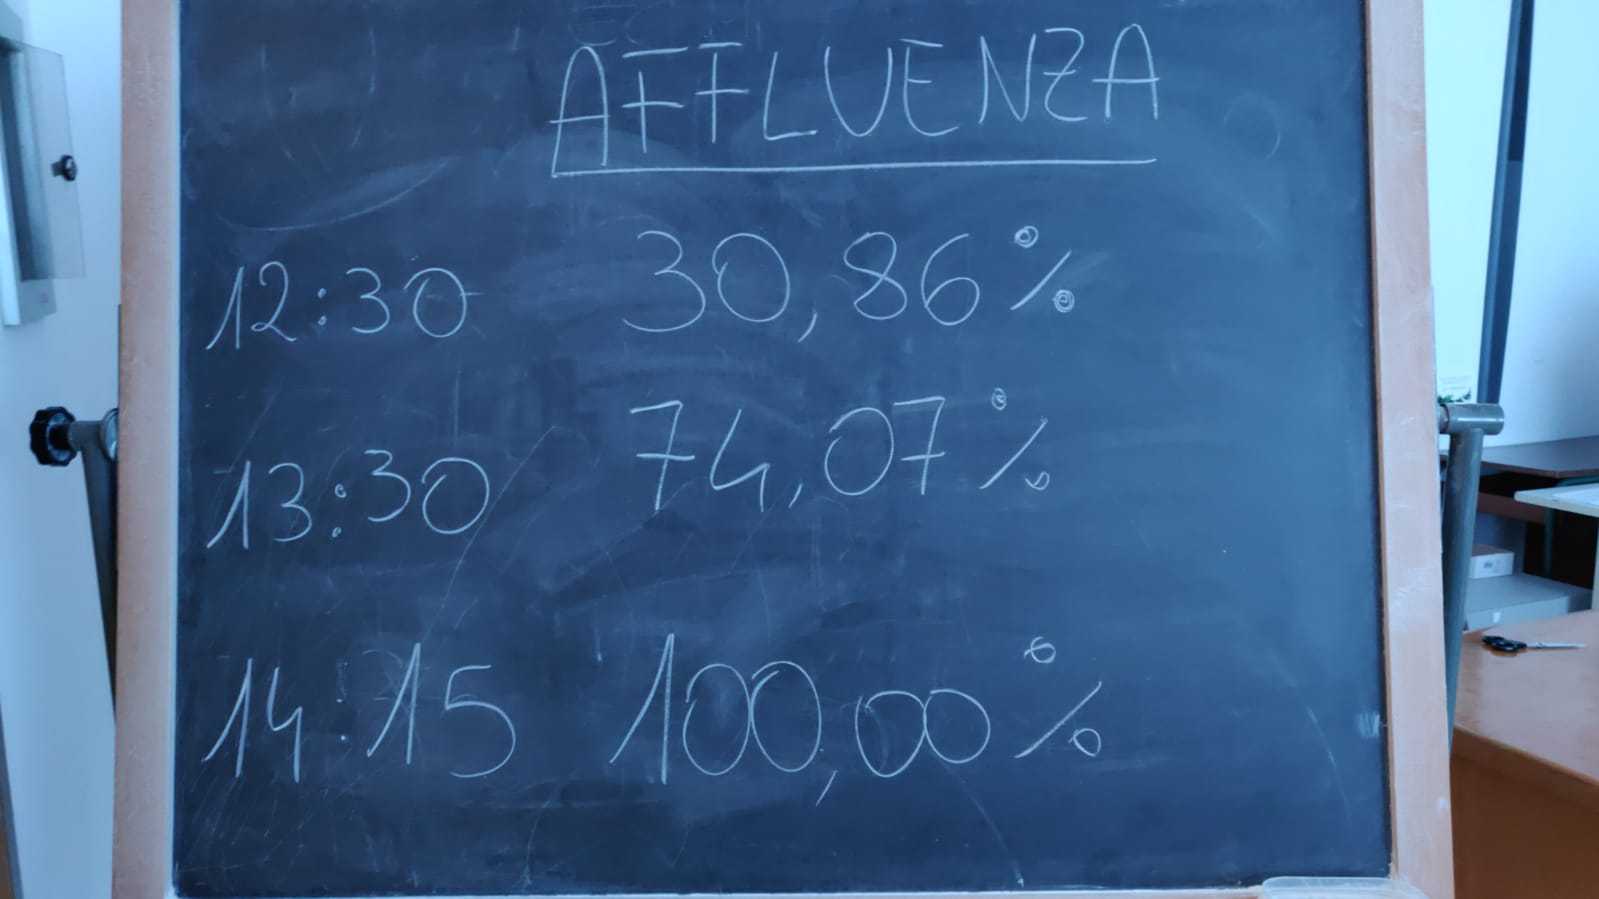 AFFLUENZA
12:30 30,86%
13:30 74,07%
14:15 100,00%